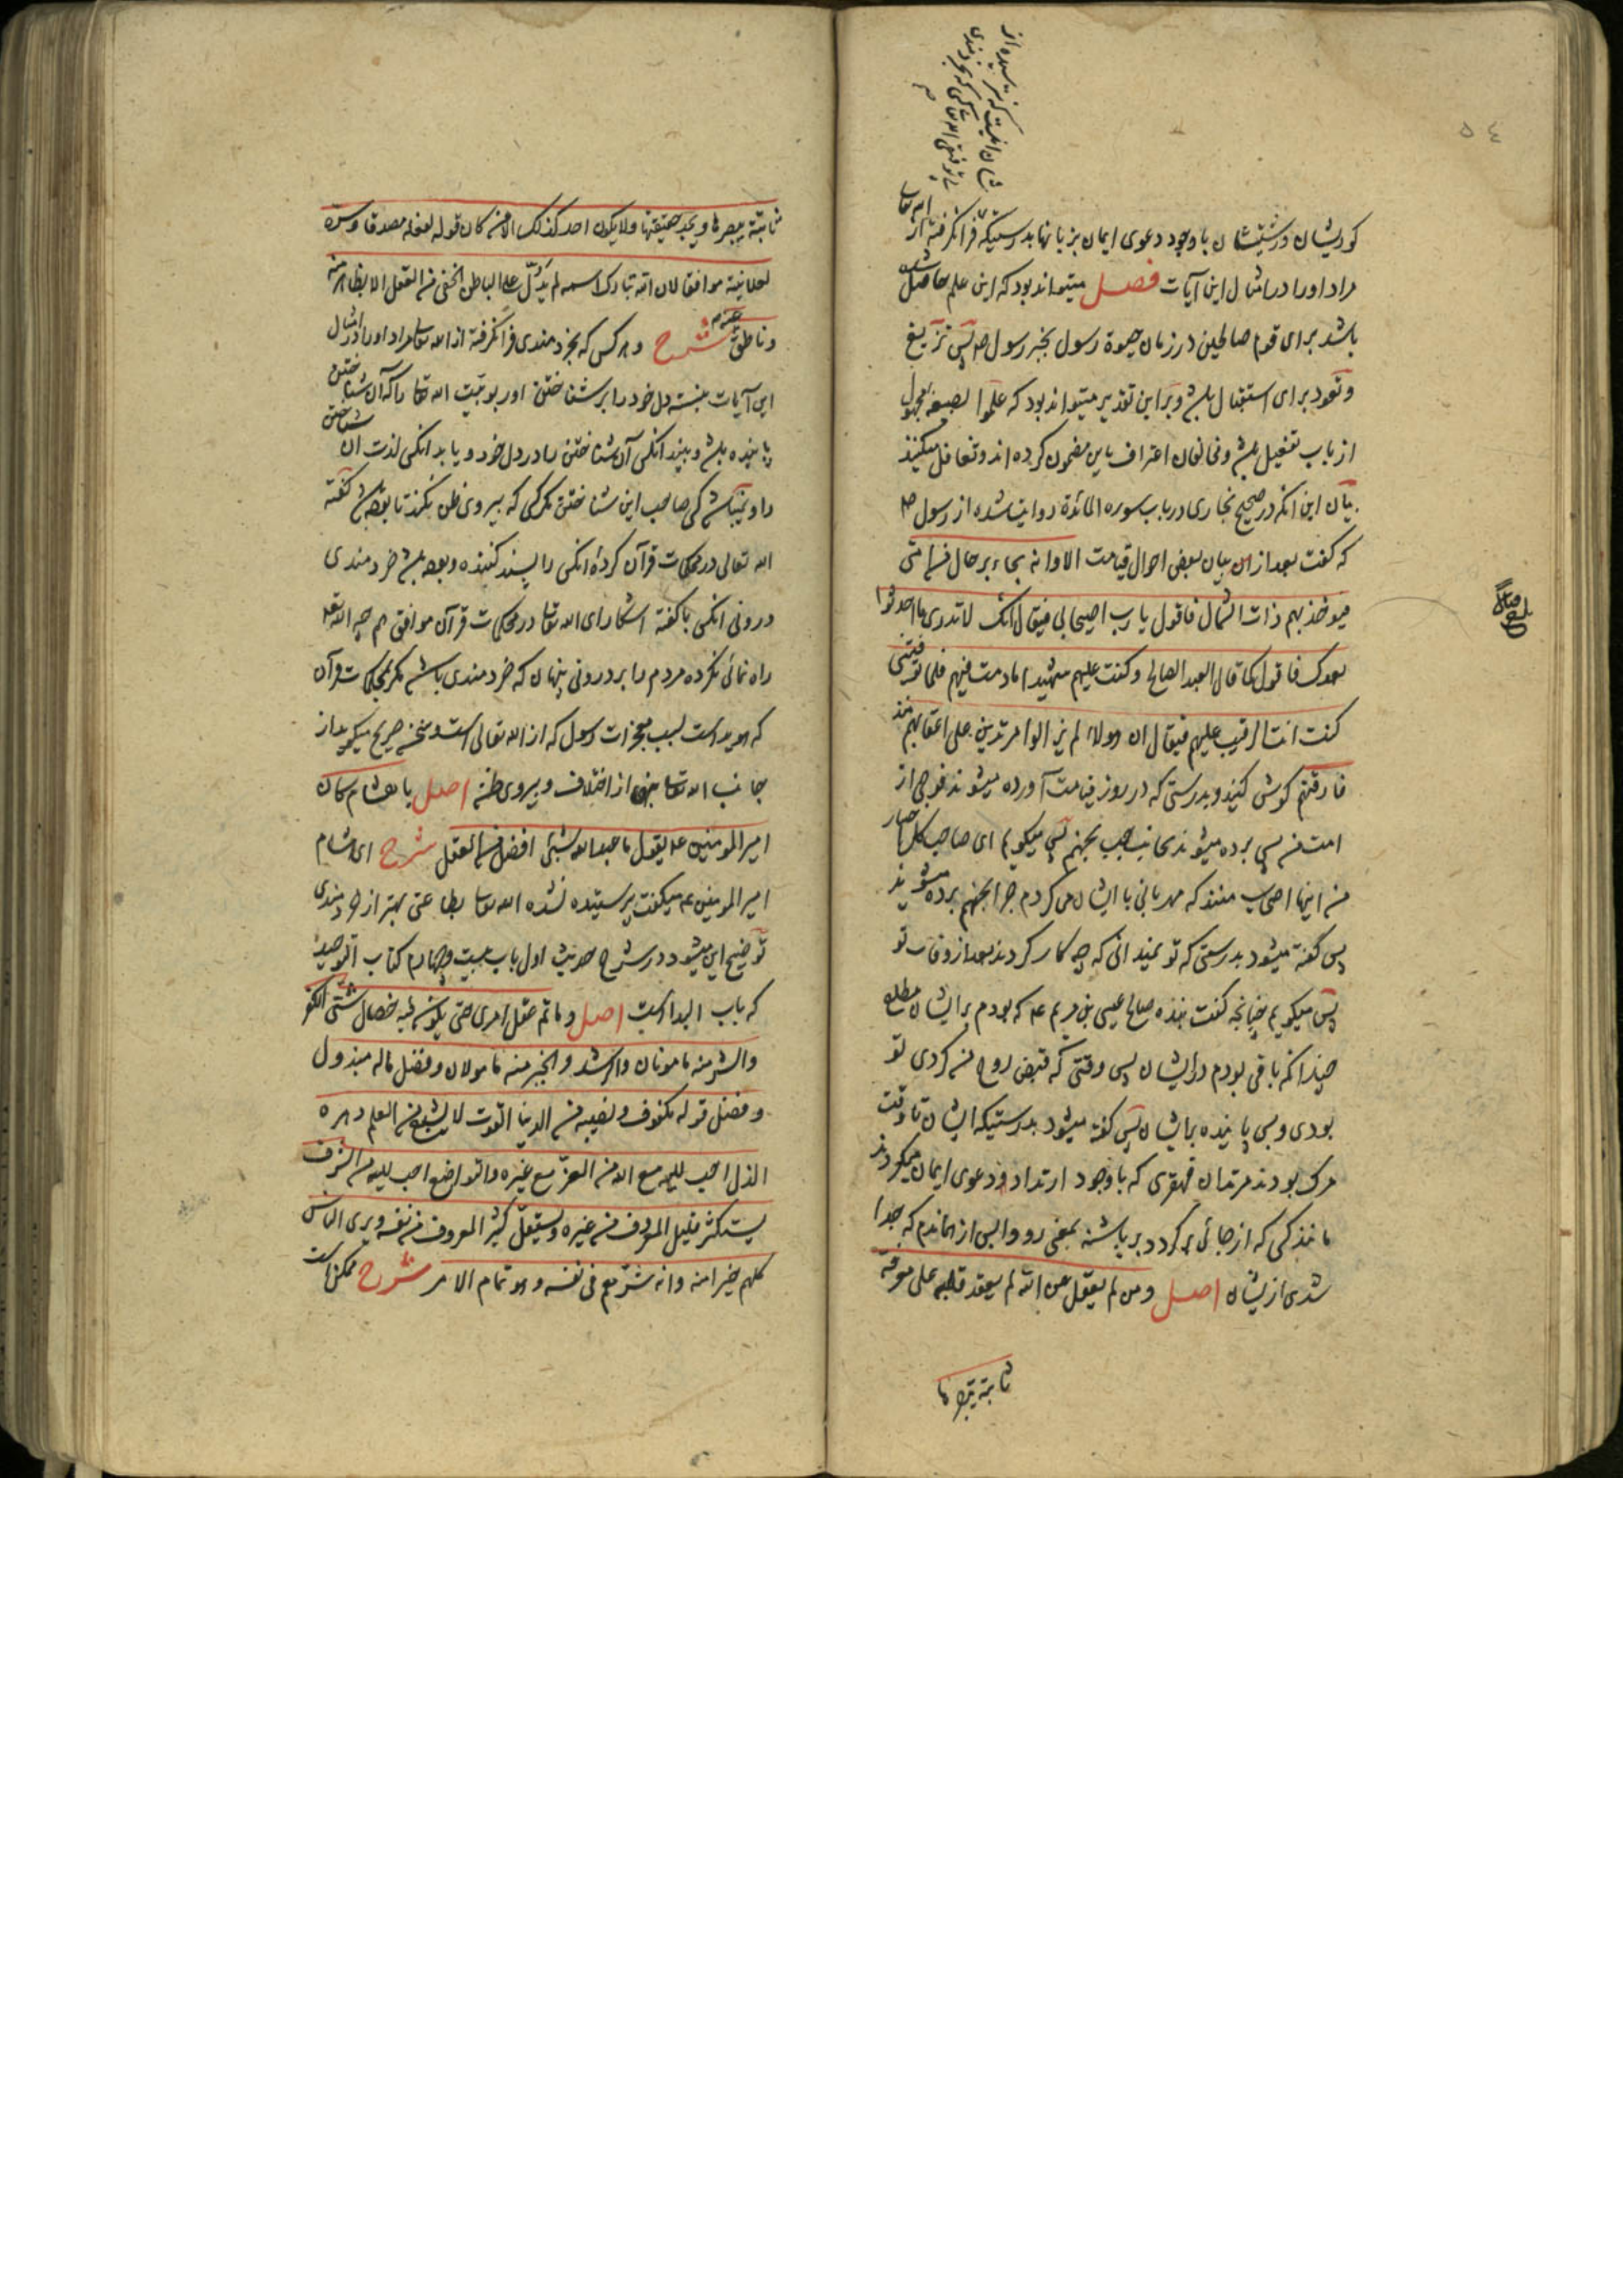 شان انیست که نترسیده از
الله تعالی
کوریشان و زشتیشان باوجود دعوی ایمان بزبانها بدرستیکه فرانگرفته از
مراد او را در امثال این آیات فصل میتواند بود که این علم حاصل شده
باشد برای قوم صالحین در زمان حیوة رسول بخبر رسول ص پس تزیغ
و تعود برای استقبال باشد و بر این تقدیر میتواند بود که علموا بصیغه مجهول
از باب تفعیل باشد و مخالفان اعتراف باین مضمون کرده اند و تغافل میکنند
بیان این آنکه در صحیح بخاری در باب سوره المائدة روایت شده از رسول ص
که گفت بعد از بیان بعض احوال قیامت الا وانه یجاء برجال من امتی
فیوخذ بهم ذات الشمال فاقول یا رب اصیحابی فیقال انک لا تدری ما احدثوا
بعدک فاقول کما قال العبد الصالح وکنت علیهم شهیدا ما دمت فیهم فلما توفیتنی
کنت انت الرقیب علیهم فیقال ان هولاء لم یزالوا مرتدین علی اعقابهم منذ
فارقتهم گوش کنید و بدرستی که در روز قیامت آورده میشوند فوجی از
امت من پس برده میشوند بجانب چپ بجهنم پس میگویم ای صاحب کل اختیار
من اینها اصحاب منند که مهربانی با ایشان می کردم چرا بجهنم برده میشوند
پس گفته میشود بدرستی که تو نمیدانی که چه کار کردند بعد از وفات تو
پس میگویم چنانچه گفت بنده صالح عیسی بن مریم ع که بودم بر ایشان مطلع
چندانکه باقی بودم در ایشان پس وقتی که قبض روح من کردی تو
بودی و بس پاینده بر ایشان پس گفته میشود بدرستیکه ایشان تا وقت
مرگ بودند مرتدان قهقری که با وجود ارتداد دعوی ایمان میکردند
مانند کسی که از جائی برگردد بر پاشنه بمعنی رو واپس از هماندم که جدا
شدی از یشان اصل ومن لم یعقل عن الله لم یعقد قلبه علی معرفة
ثابتة یبصرها
ثابتة یبصرها ویجد حقیقتها ولا یکون احد کذلک الا من کان قوله لفعله مصدقا وسره
لعلانیته موافقا لان الله تبارک اسمه لم یدل علی الباطن الخفی من العقل الا بظاهر منه
وناطق عنه شرح و هر کس که بخردمندی فرانگرفته از الله تعالی مراد او را در امثال
این آیات نبسته دل خود را بر شناختن او ربوبیت الله تعالی را که آن شناختن
پاینده باشد و بیند انکس آن شناختن را در دل خود و یابد انکس لذت آن شناختن
را و نمیباشد کسی صاحب این شناختن مگر کسی که پیروی ظن نکند تا بوده باشد گفته
الله تعالی در محکمات قرآن کرده انکس را پسند کننده و بوده باشد خردمندی
درونی انکس با گفته آشکارای الله تعالی در محکمات قرآن موافق هم چه الله تعالی
راه نمائی نکرده مردم را بر درونی پنهان که خردمندی باشد مگر بمحکمات قرآن
که هویداست بسبب معجزات رسول که از الله تعالی است و سخن صریح میگوید از
جانب الله تعالی بنهی از اختلاف و پیروی ظن اصل یا هشام کان
امیر المومنین ع یقول ما عبد الله بشئ افضل من العقل شرح ای هشام
امیر المومنین ع میگفت پرستیده نشده الله تعالی بطاعتی بهتر از خردمندی
توضیح این میشود در شرح حدیث اول باب بیست و چهارم کتاب التوحید
که باب البداست اصل وما تم عقل امرئ حتی یکون فیه خصال شتی الکفر
والشر منه مامونان والرشد والخیر منه مامولان وفضل ماله مبذول
وفضل قوله مکفوف ونصیبه من الدنیا القوت لا یشبع من العلم دهره
الذل احب الیه مع الله من العز مع غیره والتواضع احب الیه من الشرف
یستکثر قلیل المعروف من غیره ویستقل کثیر المعروف من نفسه ویری الناس
کلهم خیرا منه وانه شرهم فی نفسه وهو تمام الامر شرح ممکن است